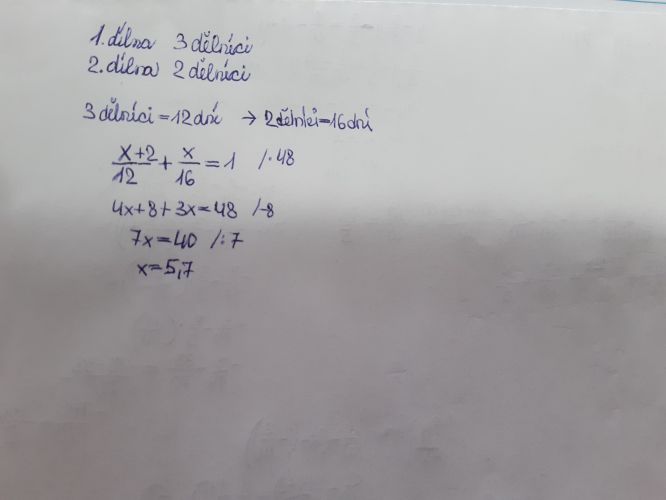 1. dílna 3 dělníci
2. dílna 2 dělníci
3 dělníci = 12 dní → 2 dělníci = 16 dní
x+2/12 + x/16 = 1 /·48
4x+8+3x=48 /-8
7x=40 /:7
x=5,7